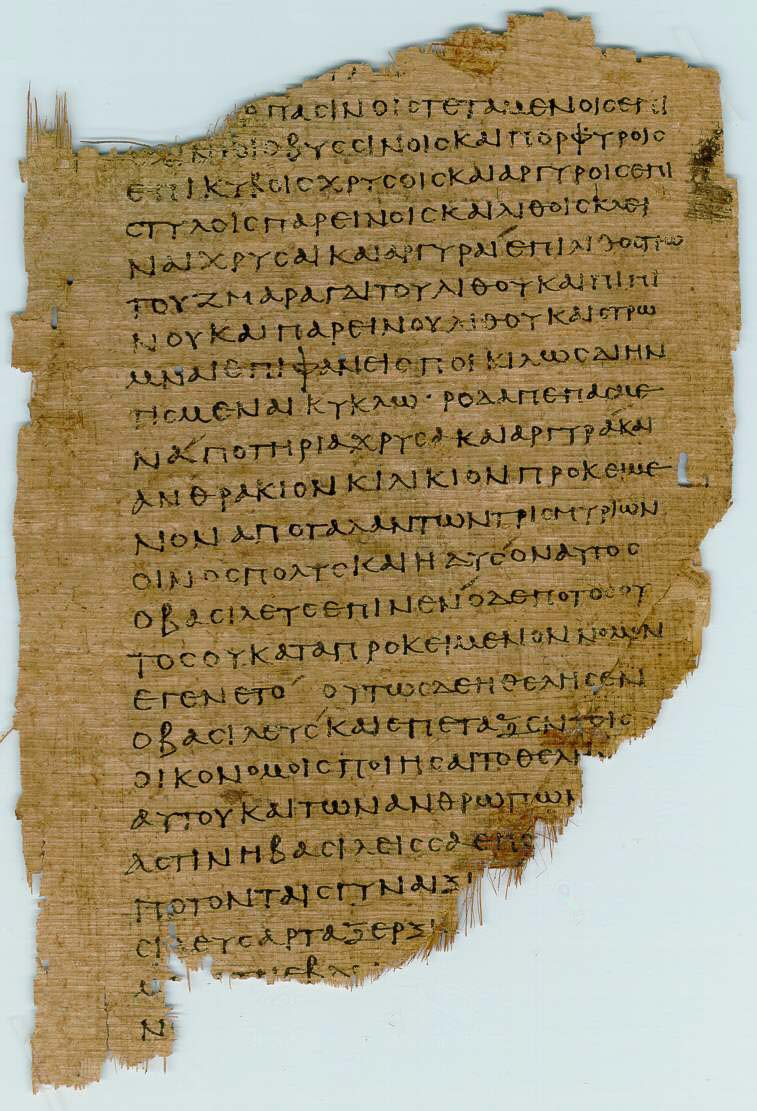 ΠΑCΙΝΟΙCΤΕΤΑΜΕΝΟΙCΕΠΙ
ΒΥCCΙΝΟΙCΚΑΙΠΟΡΦΥΡΟΙC
ΕΠΙΚΥΒΟΙCΧΡΥCΟΙCΚΑΙΑΡΓΥΡΟΙCΕΠΙ
CΤΥΛΟΙCΠΑΡΕΙΝΟΙCΚΑΙΛΙΘΟΙCΚΛΕΙ
ΝΑΙΧΡΥCΑΙΚΑΙΑΡΓΥΡΑΙΕΠΙΛΙΘΟCΤΡΩ
ΤΟΥΖΜΑΡΑΓΔΙΤΟΥΛΙΘΟΥΚΑΙΠΙΝΙ
ΝΟΥΚΑΙΠΑΡΕΙΝΟΥΛΙΘΟΥΚΑΙCΤΡΩ
ΜΝΑΙΕΠΙΦΑΝΕΙCΠΟΙΚΙΛΩCΔΙΗΝ
ΠCΜΕΝΑΙΚΥΚΛΩ·ΡΟΔΑΠΕΠΑCΜΕ
ΝΑΠΟΤΗΡΙΑΧΡΥCΑΚΑΙΑΡΓΥΡΑΚΑΙ
ΑΝΘΡΑΚΙΟΝΚΙΛΙΚΙΟΝΠΡΟΚΕΙΜΕ
ΝΟΝΑΠΟΤΑΛΑΝΤΩΝΤΡΙCΜΥΡΙΩΝ
ΟΙΝΟCΠΟΛΥCΚΑΙΗΔΥCΟΝΑΥΤΟC
ΟΒΑCΙΛΕΥCΕΠΙΝΕΝΟΔΕΠΟΤΟCΟΥ
ΤΟCΟΥΚΑΤΑΠΡΟΚΕΙΜΕΝΟΝΝΟΜΟΝ
ΕΓΕΝΕΤΟ ΟΥΤΩCΔΕΗΘΕΛΗCΕΝ
ΟΒΑCΙΛΕΥCΚΑΙΕΠΕΤΑΞΕΝΤΟΙC
ΟΙΚΟΝΟΜΟΙCΠΟΙΗCΑΙΤΟΘΕΛΗ
ΑΥΤΟΥΚΑΙΤΩΝΑΝΘΡΩΠΩΝ
ΑCΤΙΝΗΒΑCΙΛΕΙCCΑΕΠΟ
ΠΟΤΟΝΤΑΙCΓΥΝΑΙΞΙ
CΙΛΕΥCΑΡΤΑΞΕΡΞ
Ν